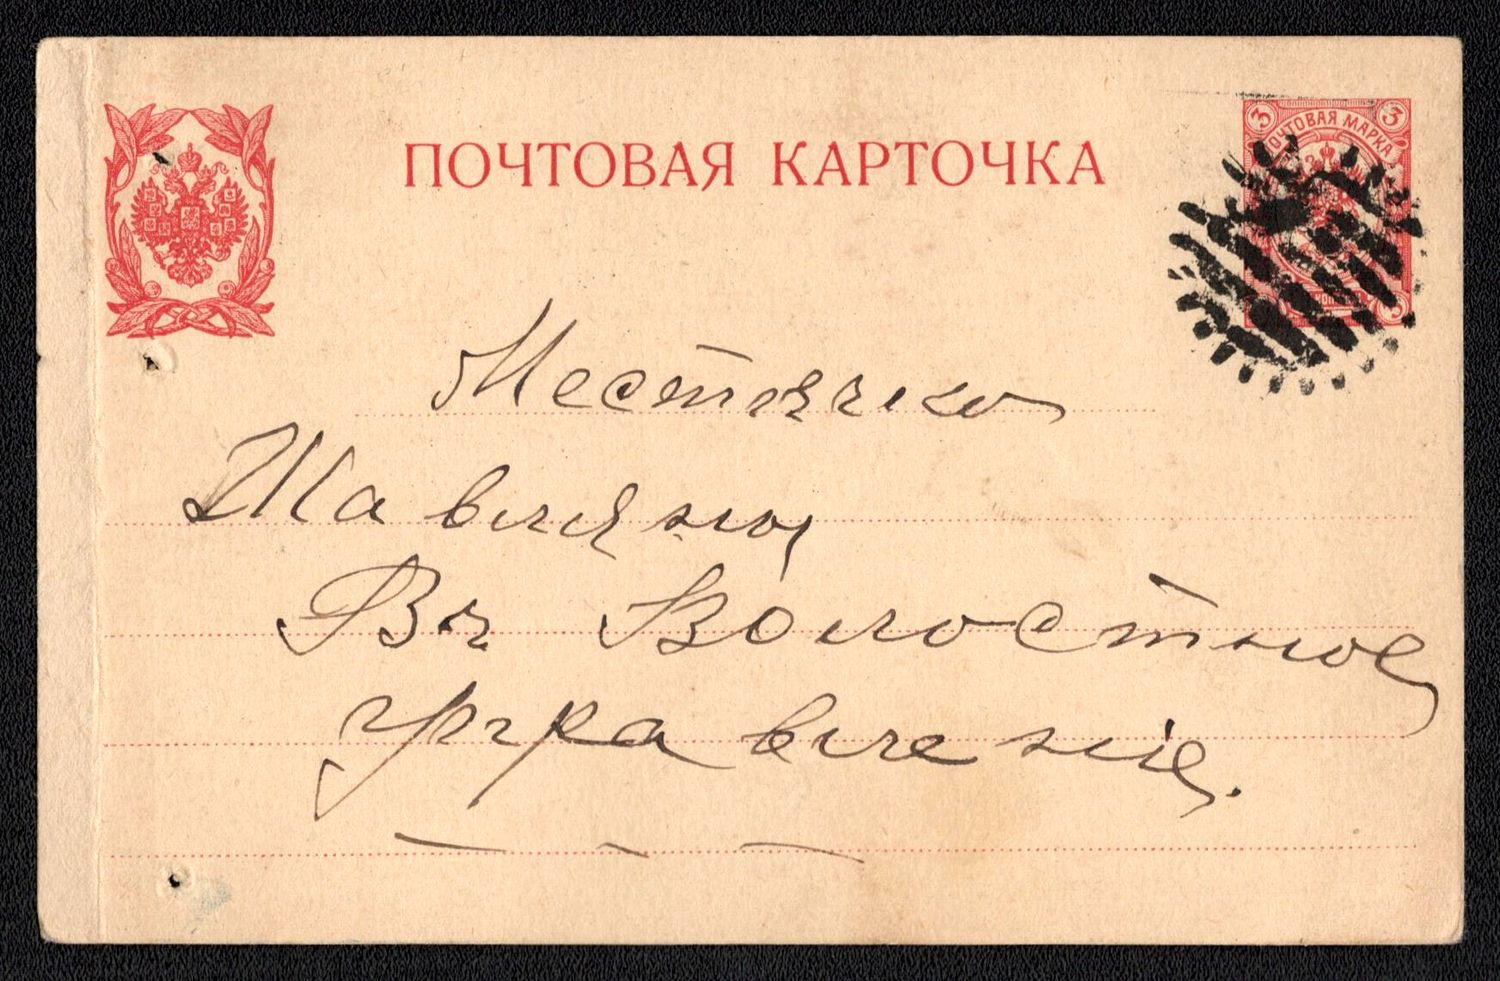 ПОЧТОВАЯ КАРТОЧКА
3 ПОЧТОВАЯ МАРКА 3
Местечко
Шавляны
Въ Волостное
Управленіе.